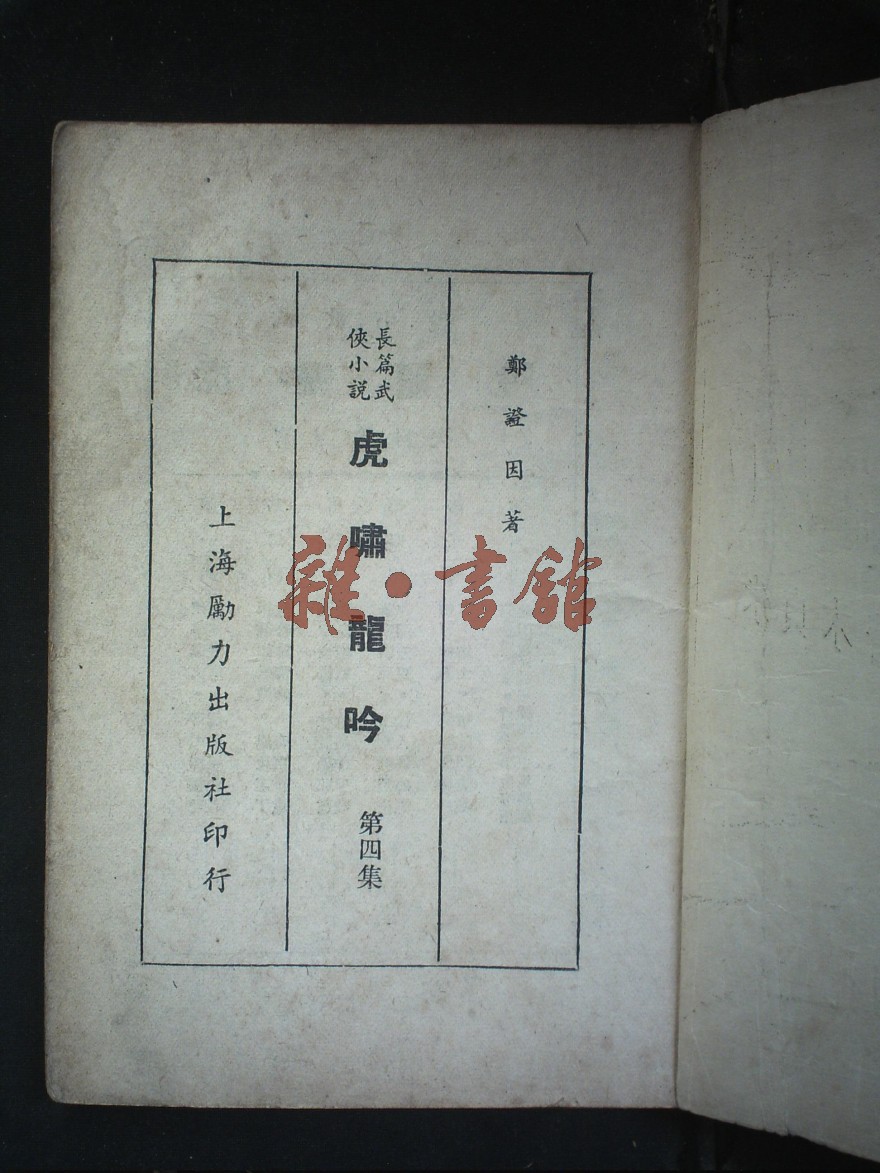 鄭證因著
長篇武
俠小説
虎嘯龍吟
第四集
上海勵力出版社印行
雜·書館